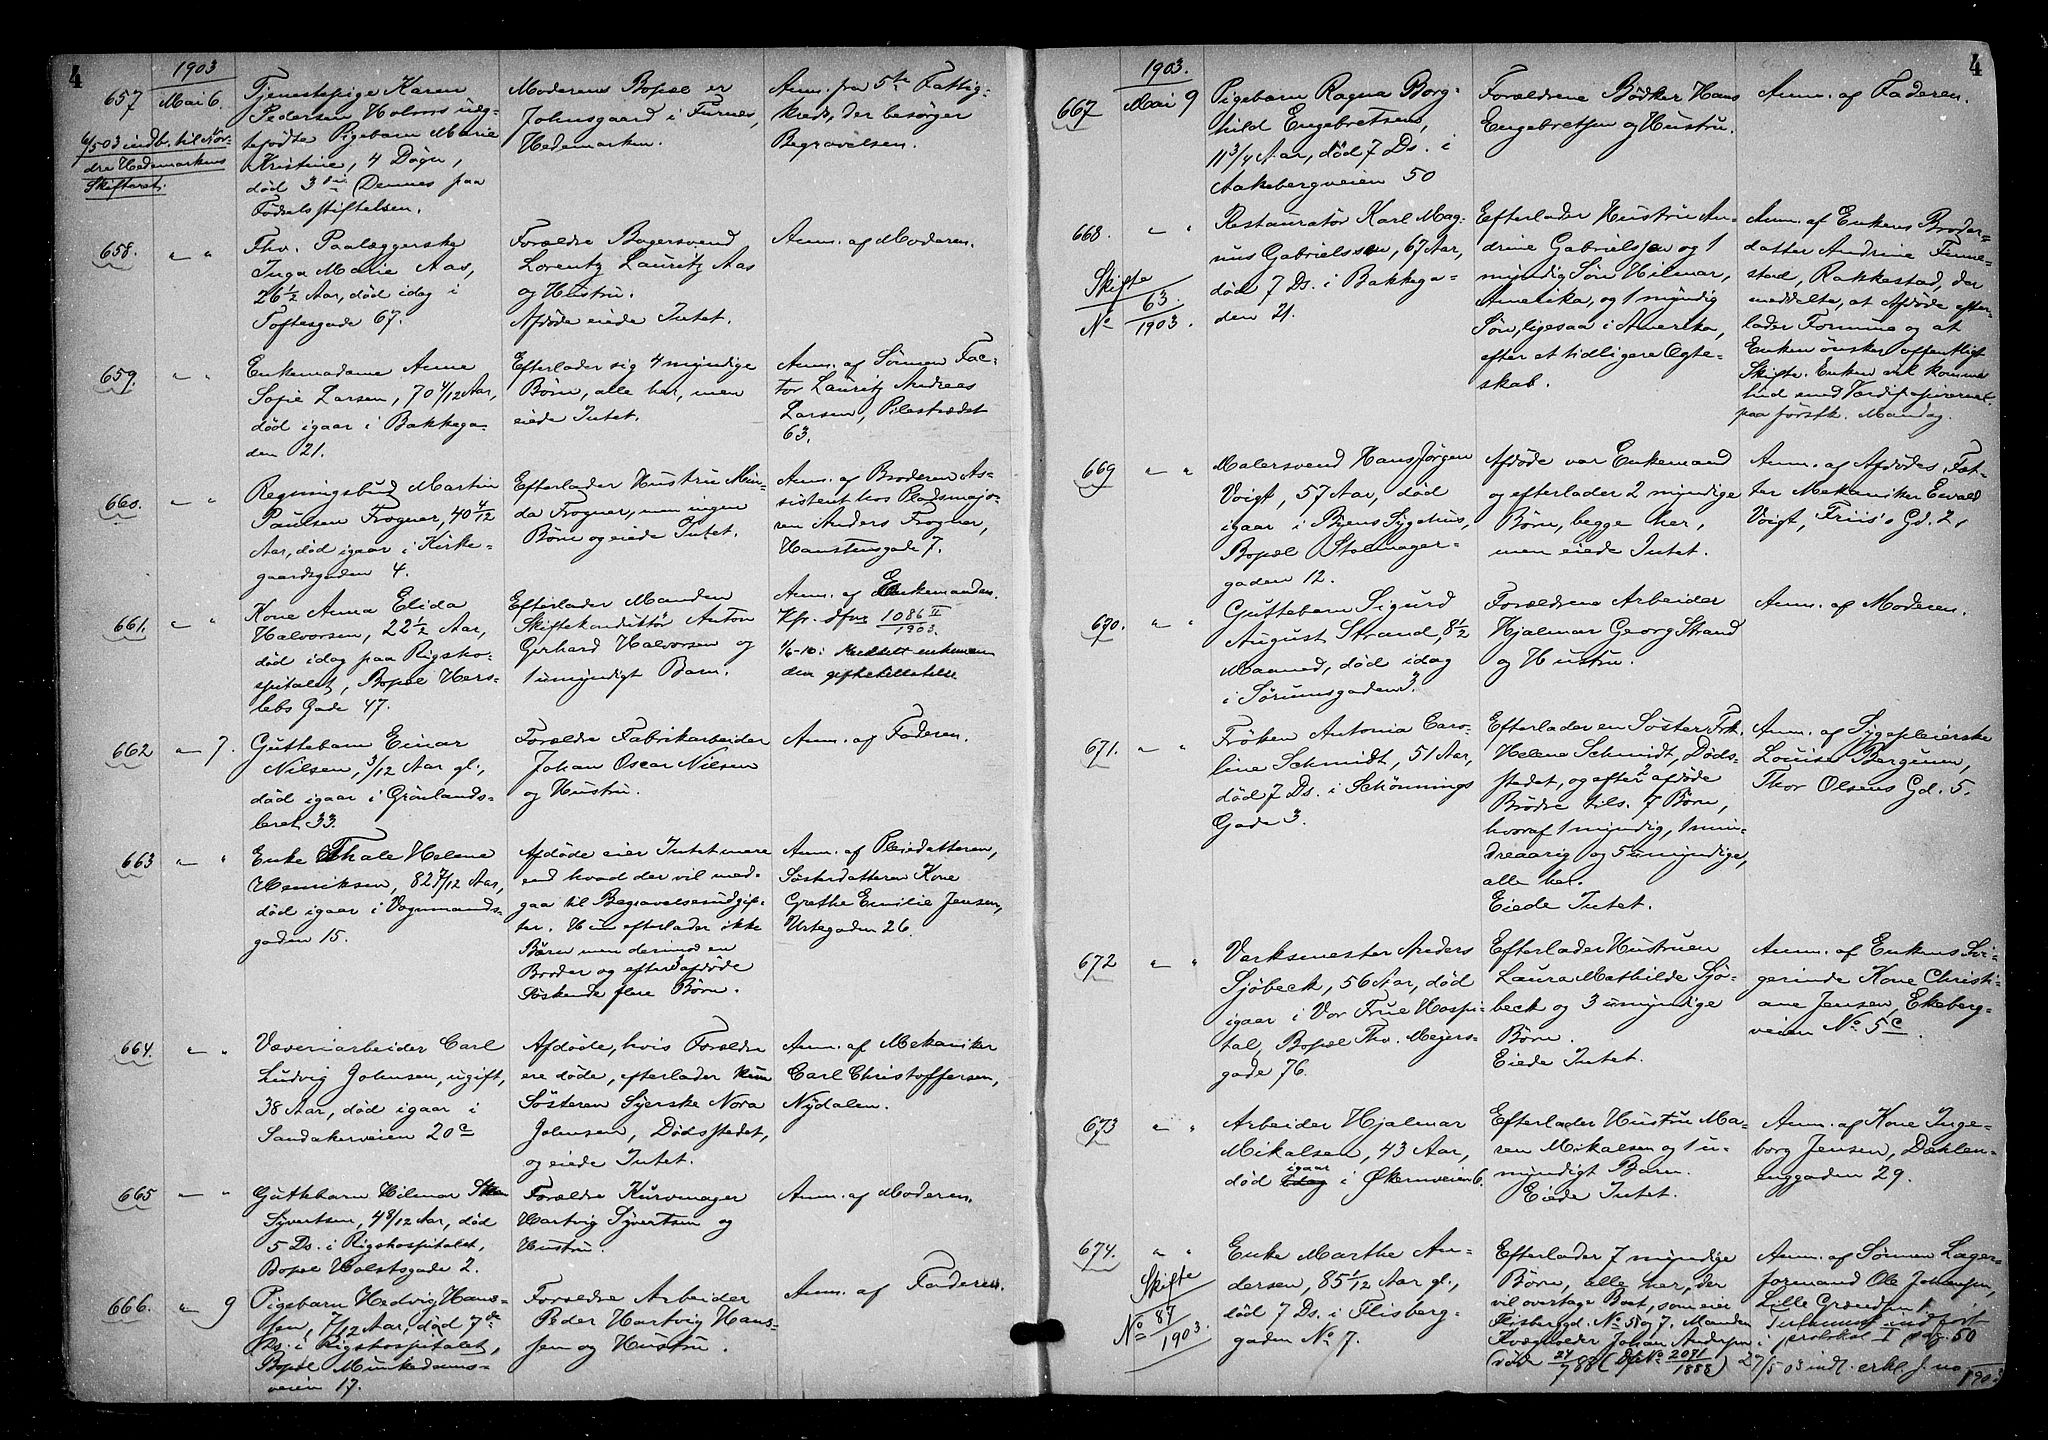 4
1903
657
Mai 6.
6/5 03 indb. til Nör-
dre Hedemarkens
Skifteret.
Tjenestepige Karen
Pedersen Holmos ud-
fødte Pigebarn Marie
Kristine, 4 Døgn,
død 3die Dennes paa
Fødselsstiftelsen.
Moderens Bopæl er
Johnsgaard i Furnes,
Hedemarken.
Anm. fra 5te Fattig-
kreds, der besørger
Begravelsen.
658.
" "
Fhv. Paalæggerske
Inga Marie Aas,
26 1/2 Aar, død idag i
Toftesgade 67.
Forældre Bagersvend
Lorentz Lauritz Aas
og Hustru.
Afdøde eiede Intet.
Anm. af Moderen.
659.
" "
Enkemadame Anne
Sofie Larsen, 70 4/12 Aar,
død igaar i Bakkega-
den 21.
Efterlader sig 4 myndige
Børn, alle her, men
eiede Intet.
Anm. af Sønnen Fac-
tor Lauritz Andreas
Larsen, Pilestrædet
63.
660.
" "
Regningsbud Martin
Paulsen Frogner, 40 4/12
Aar, død igaar i Kirke-
gaardsgaden 4.
Efterlader Hustru Min-
da Frogner, men ingen
Børn og eiede Intet.
Anm. af Broderen As-
sistent hos Pladsmajo-
ren Anders Frogner,
Hanstensgade 7.
661.
" "
Kone Anna Elida
Halvorsen, 22 1/2 Aar,
død idag paa Rigsho-
spitalet, Bopæl Hers-
lebs Gade 47.
Efterlader Manden
Skiftekonduktør Anton
Gerhard Halvorsen og
1 umyndigt Barn.
Anm. af Enkemanden.
Kfr. dfnr 1086 II/1903.
1/6-10: Meddelt enkeman
den giftetilladelse
662
" 7.
Guttebarn Einar
Nilsen, 3/12 Aar gl.,
død igaar i Grønlands-
leret 33.
Forældre Fabrikarbeider
Johan Oscar Nilsen
og Hustru.
Anm. af Faderen.
663
" "
Enke Thale Helene
Henriksen, 82 7/12 Aar,
død igaar i Vognmands-
gaden 15.
Afdøde eier Intet mere
end hvad der vil med-
gaa til Begravelsesudgif-
ter. Hun efterlader ikke
Børn men derimod en
Broder og efter 3 afdøde
Søskende flere Børn.
Anm. af Pleiedatteren,
Søsterdatteren Kone
Grethe Emilie Jensen,
Urtegaden 26.
664.
" "
Væveriarbeider Carl
Ludvig Johnsen, ugift,
38 Aar, død igaar i
Sandakerveien 20 c
Afdøde, hvis Forældre
ere døde, efterlader kun
Søsteren Syerske Nora
Johnsen, Dødsstedet,
og eiede Intet.
Anm. af Mekaniker
Carl Christoffersen,
Nydalen.
665
" "
Guttebarn Hilmar
Syvertsen, 4 8/12 Aar, død
5 Ds. i Rigshospitalet,
Bopæl Holstsgade 2.
Forældre Kurvmager
Hartvig Syvertsen og
Hustru.
Anm. af Moderen.
666.
" 9
Pigebarn Hedvig Han-
sen, 7/12 Aar, død 7de
Ds. i Rigshospitalet,
Bopæl Munkedams-
veien 17.
Forældre Arbeider
Peder Hartvig Han-
sen og Hustru.
Anm. af Faderen.
4
1903.
667
Mai 9
Pigebarn Ragna Borg-
hild Engebretsen,
11 3/4 Aar, død 7 Ds. i
Aakebergveien 50
Forældrene Bødker Hans
Engebretsen og Hustru.
Anm. af Faderen.
668.
" "
Skifte
No 63/1903.
Restauratør Karl Mag-
nus Gabrielssen, 67 Aar,
død 7 Ds. i Bakkega-
den 21.
Efterlader Hustru An-
drine Gabrielsen og 1
myndig Søn Hilmar,
Amerika, og 1 myndig
Søn, ligesaa i Amerika,
efter et tidligere Ægte-
skab.
Anm. af Enkens Broder-
datter Andrine Finne-
stad, Rakkestad, der
meddelte, at Afdøde efter-
lader Formue og at
Enken ønsker offentligt
Skifte. Enken vil komme
hid med Værdipapirerne
paa førstk. Mandag.
669
" "
Malersvend Hans Jørgen
Voigt, 57 Aar, død
igaar i Byens Sygehus,
Bopæl Stolmager-
gaden 12.
Afdøde var Enkemand
og efterlader 2 myndige
Børn, begge her,
men eiede Intet.
Anm. af Afdødes Fæt-
ter Mekaniker Ewald
Voigt, Friis's Gd. 2,
670.
" "
Guttebarn Sigurd
August Strand, 8 1/2
Maaned, død idag
i Sørumsgaden 3.
Forældrene Arbeider
Hjalmar Georg Strand
og Hustru.
Anm. af Moderen.
671.
" "
Frøken Antonia Caro-
line Schmidt, 51 Aar,
død 7 Ds. i Schønnings
Gade 3.
Efterlader en Søster, Frk.
Helene Schmidt, Døds-
stedet, og efter 2 afdøde
Brødre tils. 7 Børn,
hvoraf 1 myndig, 1 min-
dreaarig og 5 umyndige,
alle her.
Eiede Intet.
Anm. af Sygepleierske
Louise Bergum,
Thor Olsens Gd. 5.
672
" "
Verksmester Anders
Sjöbeck, 56 Aar, død
igaar i Vor Frue Hospi-
tal, Bopæl Thv. Meyers-
gade 76.
Efterlader Hustruen
Laura Mathilde Sjö-
beck og 3 umyndige
Børn.
Eiede Intet.
Anm. af Enkens Svi-
gerinde Kone Christi-
ane Jensen, Ekeberg-
veien No 5 c.
673
" "
Arbeider Hjalmar
Mikalsen, 43 Aar,
død igaar i Økernveien 6.
Efterlader Hustru Ma-
ren Mikalsen og 1 u-
myndigt Barn.
Eiede Intet.
Anm. af Kone Inge-
borg Jensen, Dæhlen-
enggaden 29.
674.
" "
Skifte
No 87/1903.
Enke Marthe An-
dersen, 85 1/12 Aar gl.,
død 7 Ds. i Flisberg-
gaden No 7.
Efterlader 7 myndige
Børn, alle her, der
vil overtage Boet, som eier
Flisberggd. No 5 og 7. Manden
Johan Andersen
død 24/7 88 (Dfno 2071/1888)
Anm. af Sønnen Lager-
formand Ole Johansen,
Lille Grændsen 1
indført i
protokol I pag. 50
27/5 03 indl. erkl. J. no
1903